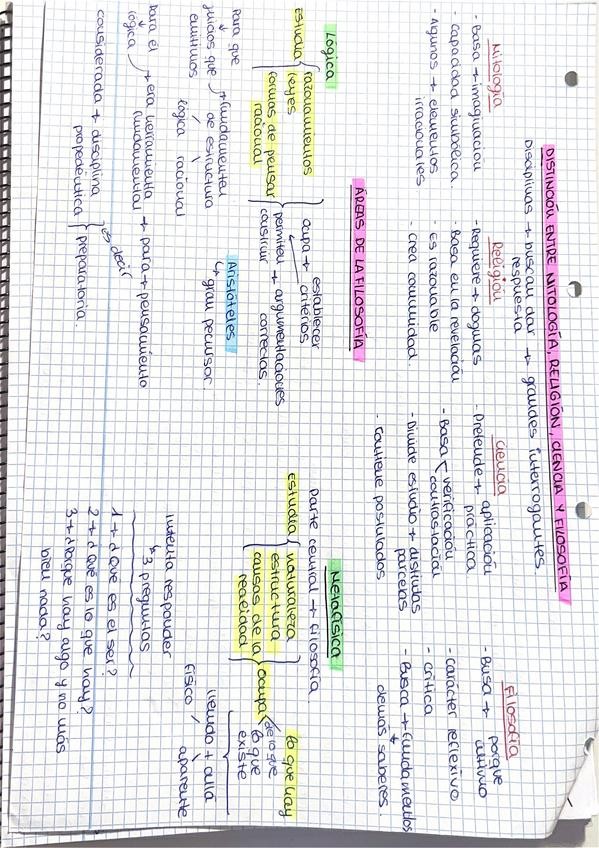 DISTINCIÓN ENTRE MITOLOGÍA, RELIGIÓN, CIENCIA Y FILOSOFÍA
Disciplinas → buscan dar → grandes interrogantes.
respuesta
Mitología
- Basa → imaginación
- Capacidad simbólica.
- Algunos → elementos
irracionales
Religión
- Requiere → dogmas
- Basa en la revelación
- Es razonable
- Crea comunidad.
Ciencia
- Pretende → aplicación
práctica
- Basa verificación
contrastación
- Divide estudio → distintas
parcelas
- Contiene postulados
Filosofía
- Busa → porque
último
- Carácter reflexivo
- crítica
- Busca → fundamentos
demás saberes.
ÁREAS DE LA FILOSOFÍA
Lógica
Estudia razonamientos
leyes
formas de pensar
racional
Ocupa → establecer
criterios
permiten → argumentaciones
construir correctas.
Para que
juicios que → fundamenten
emitimos de estructura
lógica racional
Aristóteles
↳ gran percursor
Para él
lógica → era herramienta → para → pensamiento
fundamental
considerada → disciplina es decir
propedéutica preparatoria.
Metafísica
Parte central → filosofía.
Estudia naturaleza
estructura
causas de la
realidad
Ocupa lo que hay
de lo que
lo que
existe
Yendo + allá
físico aparente
Intenta responder
↳ 3 preguntas
1 → ¿Que es el ser?
2 → ¿Qué es lo que hay?
3 → ¿Porque hay algo y no más
bien nada?